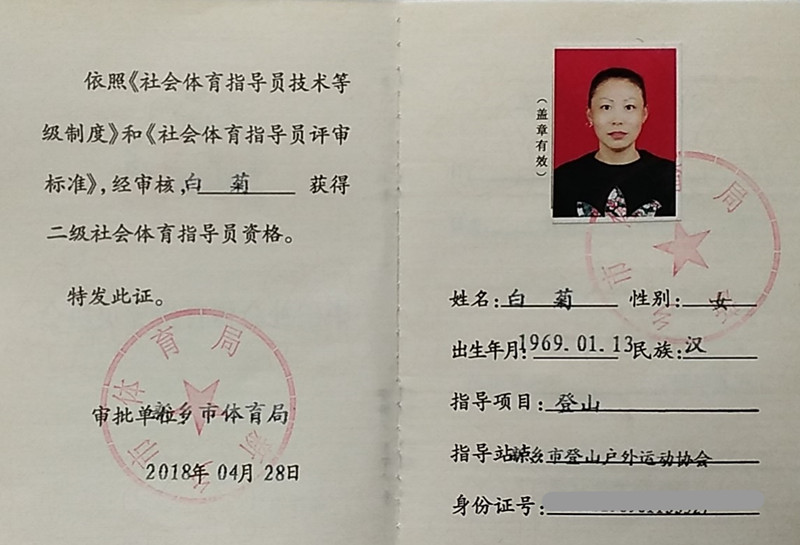 依照《社会体育指导员技术等
级制度》和《社会体育指导员评审
标准》，经审核，白 菊 获得
二级社会体育指导员资格。
特发此证。
市体育局
审批单位 新乡市体育局
2018年 04月 28日
(盖章有效)
育局
市
姓名：白 菊 性别：女
出生年月：1969.01.13 民族：汉
指导项目：登山
指导站：新乡市登山户外运动协会
身份证号：